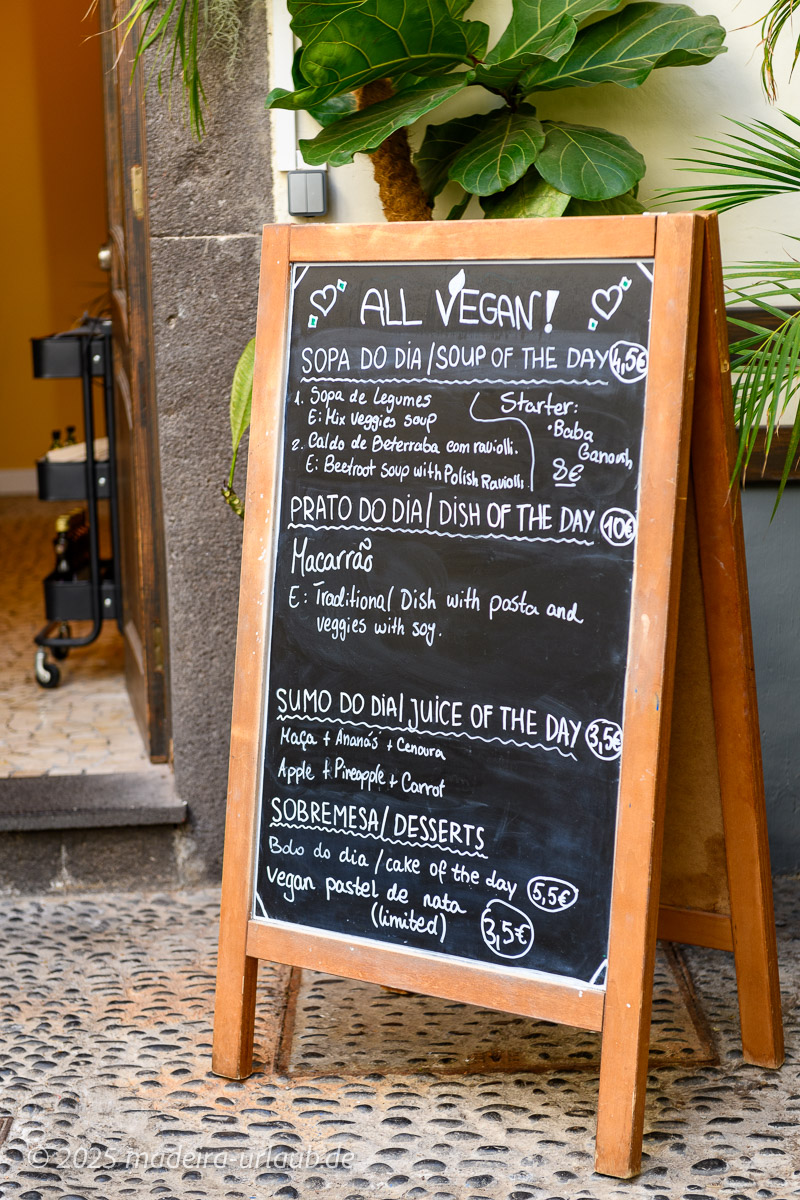 ALL VEGAN!
SOPA DO DIA/SOUP OF THE DAY 4,5€
1. Sopa de Legumes
E: Mix Veggies soup
2. Caldo de Beterraba com raviolli.
E: Beetroot soup with Polish Raviolli
Starter:
•Baba
Ganoush,
8€
PRATO DO DIA/DISH OF THE DAY 10€
Macarrão
E: Traditional Dish with pasta and
veggies with soy.
SUMO DO DIA/JUICE OF THE DAY 3,5€
Maça + Ananás + Cenoura
Apple + Pineapple + Carrot
SOBREMESA/DESSERTS
Bolo do dia/cake of the day 5,5€
Vegan pastel de nata
(limited) 3,5€
© 2025 madeira-urlaub.de